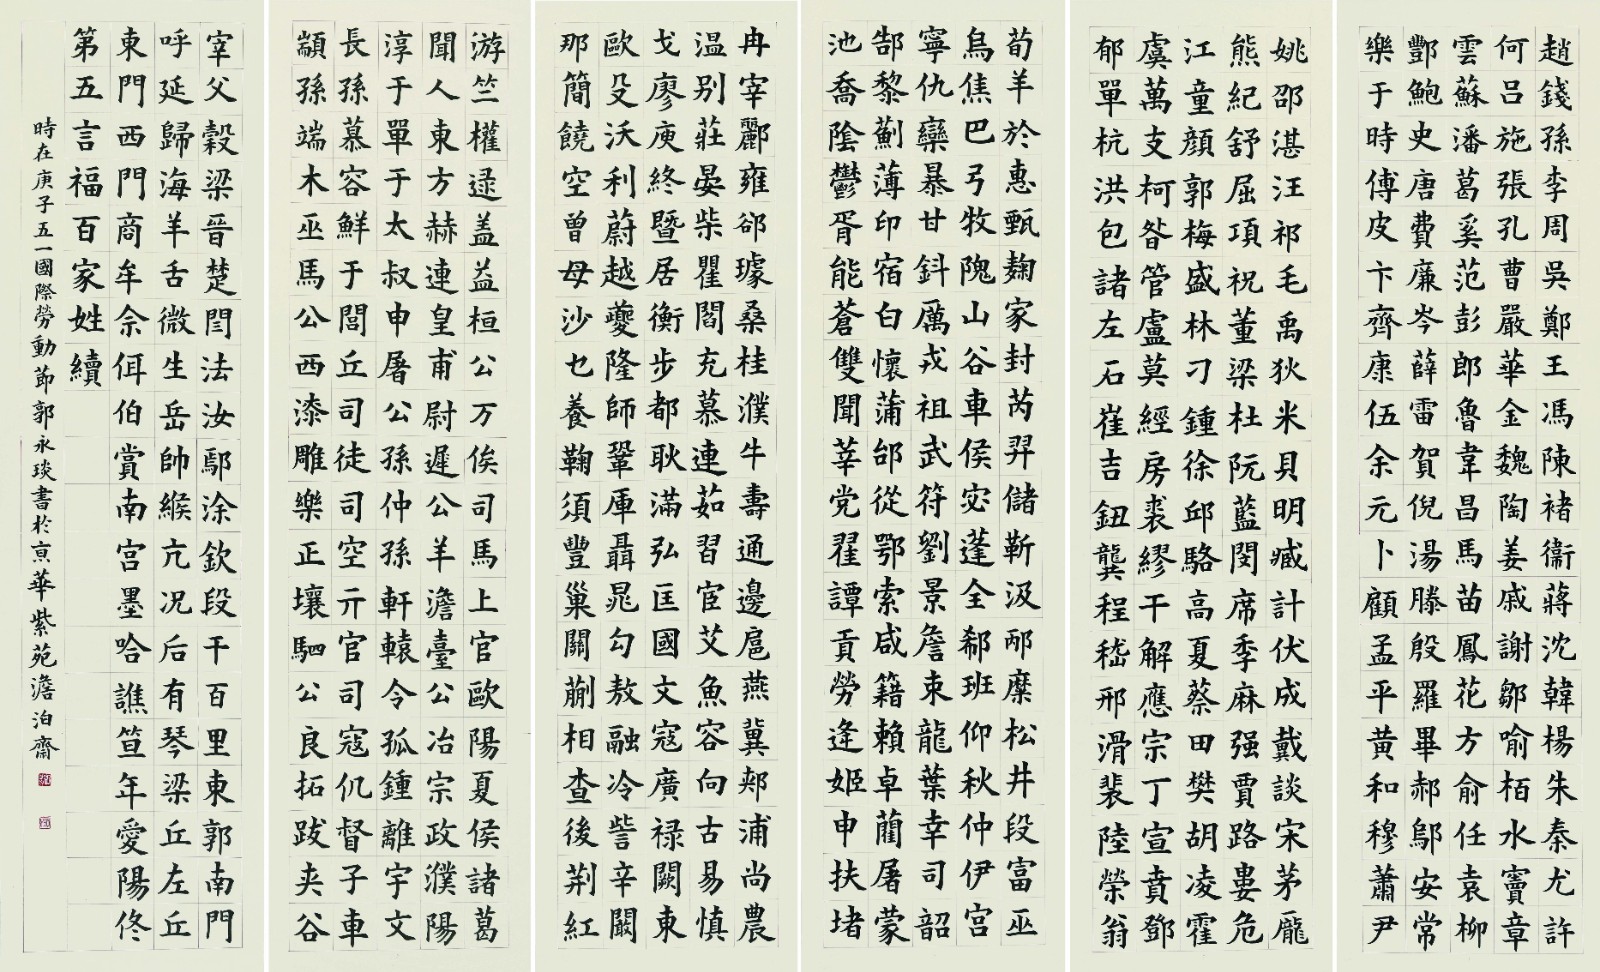 趙錢孫李周吳鄭王馮陳褚衞蔣沈韓楊朱秦尤許
何呂施張孔曹嚴華金魏陶姜戚謝鄒喻栢水竇章
雲蘇潘葛奚范彭郎魯韋昌馬苗鳳花方俞任袁柳
酆鮑史唐費廉岑薛雷賀倪湯滕殷羅畢郝鄔安常
樂于時傅皮卞齊康伍余元卜顧孟平黃和穆蕭尹
姚邵湛汪祁毛禹狄米貝明臧計伏成戴談宋茅龐
熊紀舒屈項祝董梁杜阮藍閔席季麻强賈路婁危
江童顏郭梅盛林刁鍾徐邱駱高夏蔡田樊胡凌霍
虞萬支柯昝管盧莫經房裘繆干解應宗丁宣賁鄧
郁單杭洪包諸左石崔吉鈕龔程嵇邢滑裴陸榮翁
荀羊於惠甄麴家封芮羿儲靳汲邴糜松井段富巫
烏焦巴弓牧隗山谷車侯宓蓬全郗班仰秋仲伊宮
寧仇欒暴甘鈄厲戎祖武符劉景詹束龍葉幸司韶
郜黎薊薄印宿白懷蒲邰從鄂索咸籍賴卓藺屠蒙
池喬陰鬱胥能蒼雙聞莘党翟譚貢勞逄姬申扶堵
冉宰酈雍郤璩桑桂濮牛壽通邊扈燕冀郟浦尚農
温别莊晏柴瞿閻充慕連茹習宦艾魚容向古易慎
戈廖庾終暨居衡步都耿滿弘匡國文寇廣禄闕東
歐殳沃利蔚越夔隆師鞏厙聶晁勾敖融冷訾辛闞
那簡饒空曾毋沙乜養鞠須豐巢關蒯相查後荊紅
游竺權逯盖益桓公万俟司馬上官歐陽夏侯諸葛
聞人東方赫連皇甫尉遲公羊澹臺公冶宗政濮陽
淳于單于太叔申屠公孫仲孫軒轅令狐鍾離宇文
長孫慕容鮮于閭丘司徒司空亓官司寇仉督子車
顓孫端木巫馬公西漆雕樂正壤駟公良拓跋夾谷
宰父穀梁晉楚閆法汝鄢涂欽段干百里東郭南門
呼延歸海羊舌微生岳帥緱亢况后有琴梁丘左丘
東門西門商牟佘佴伯賞南宮墨哈譙笪年愛陽佟
第五言福百家姓續
時在庚子五一國際勞動節郭永琰書於京華紫苑澹泊齋